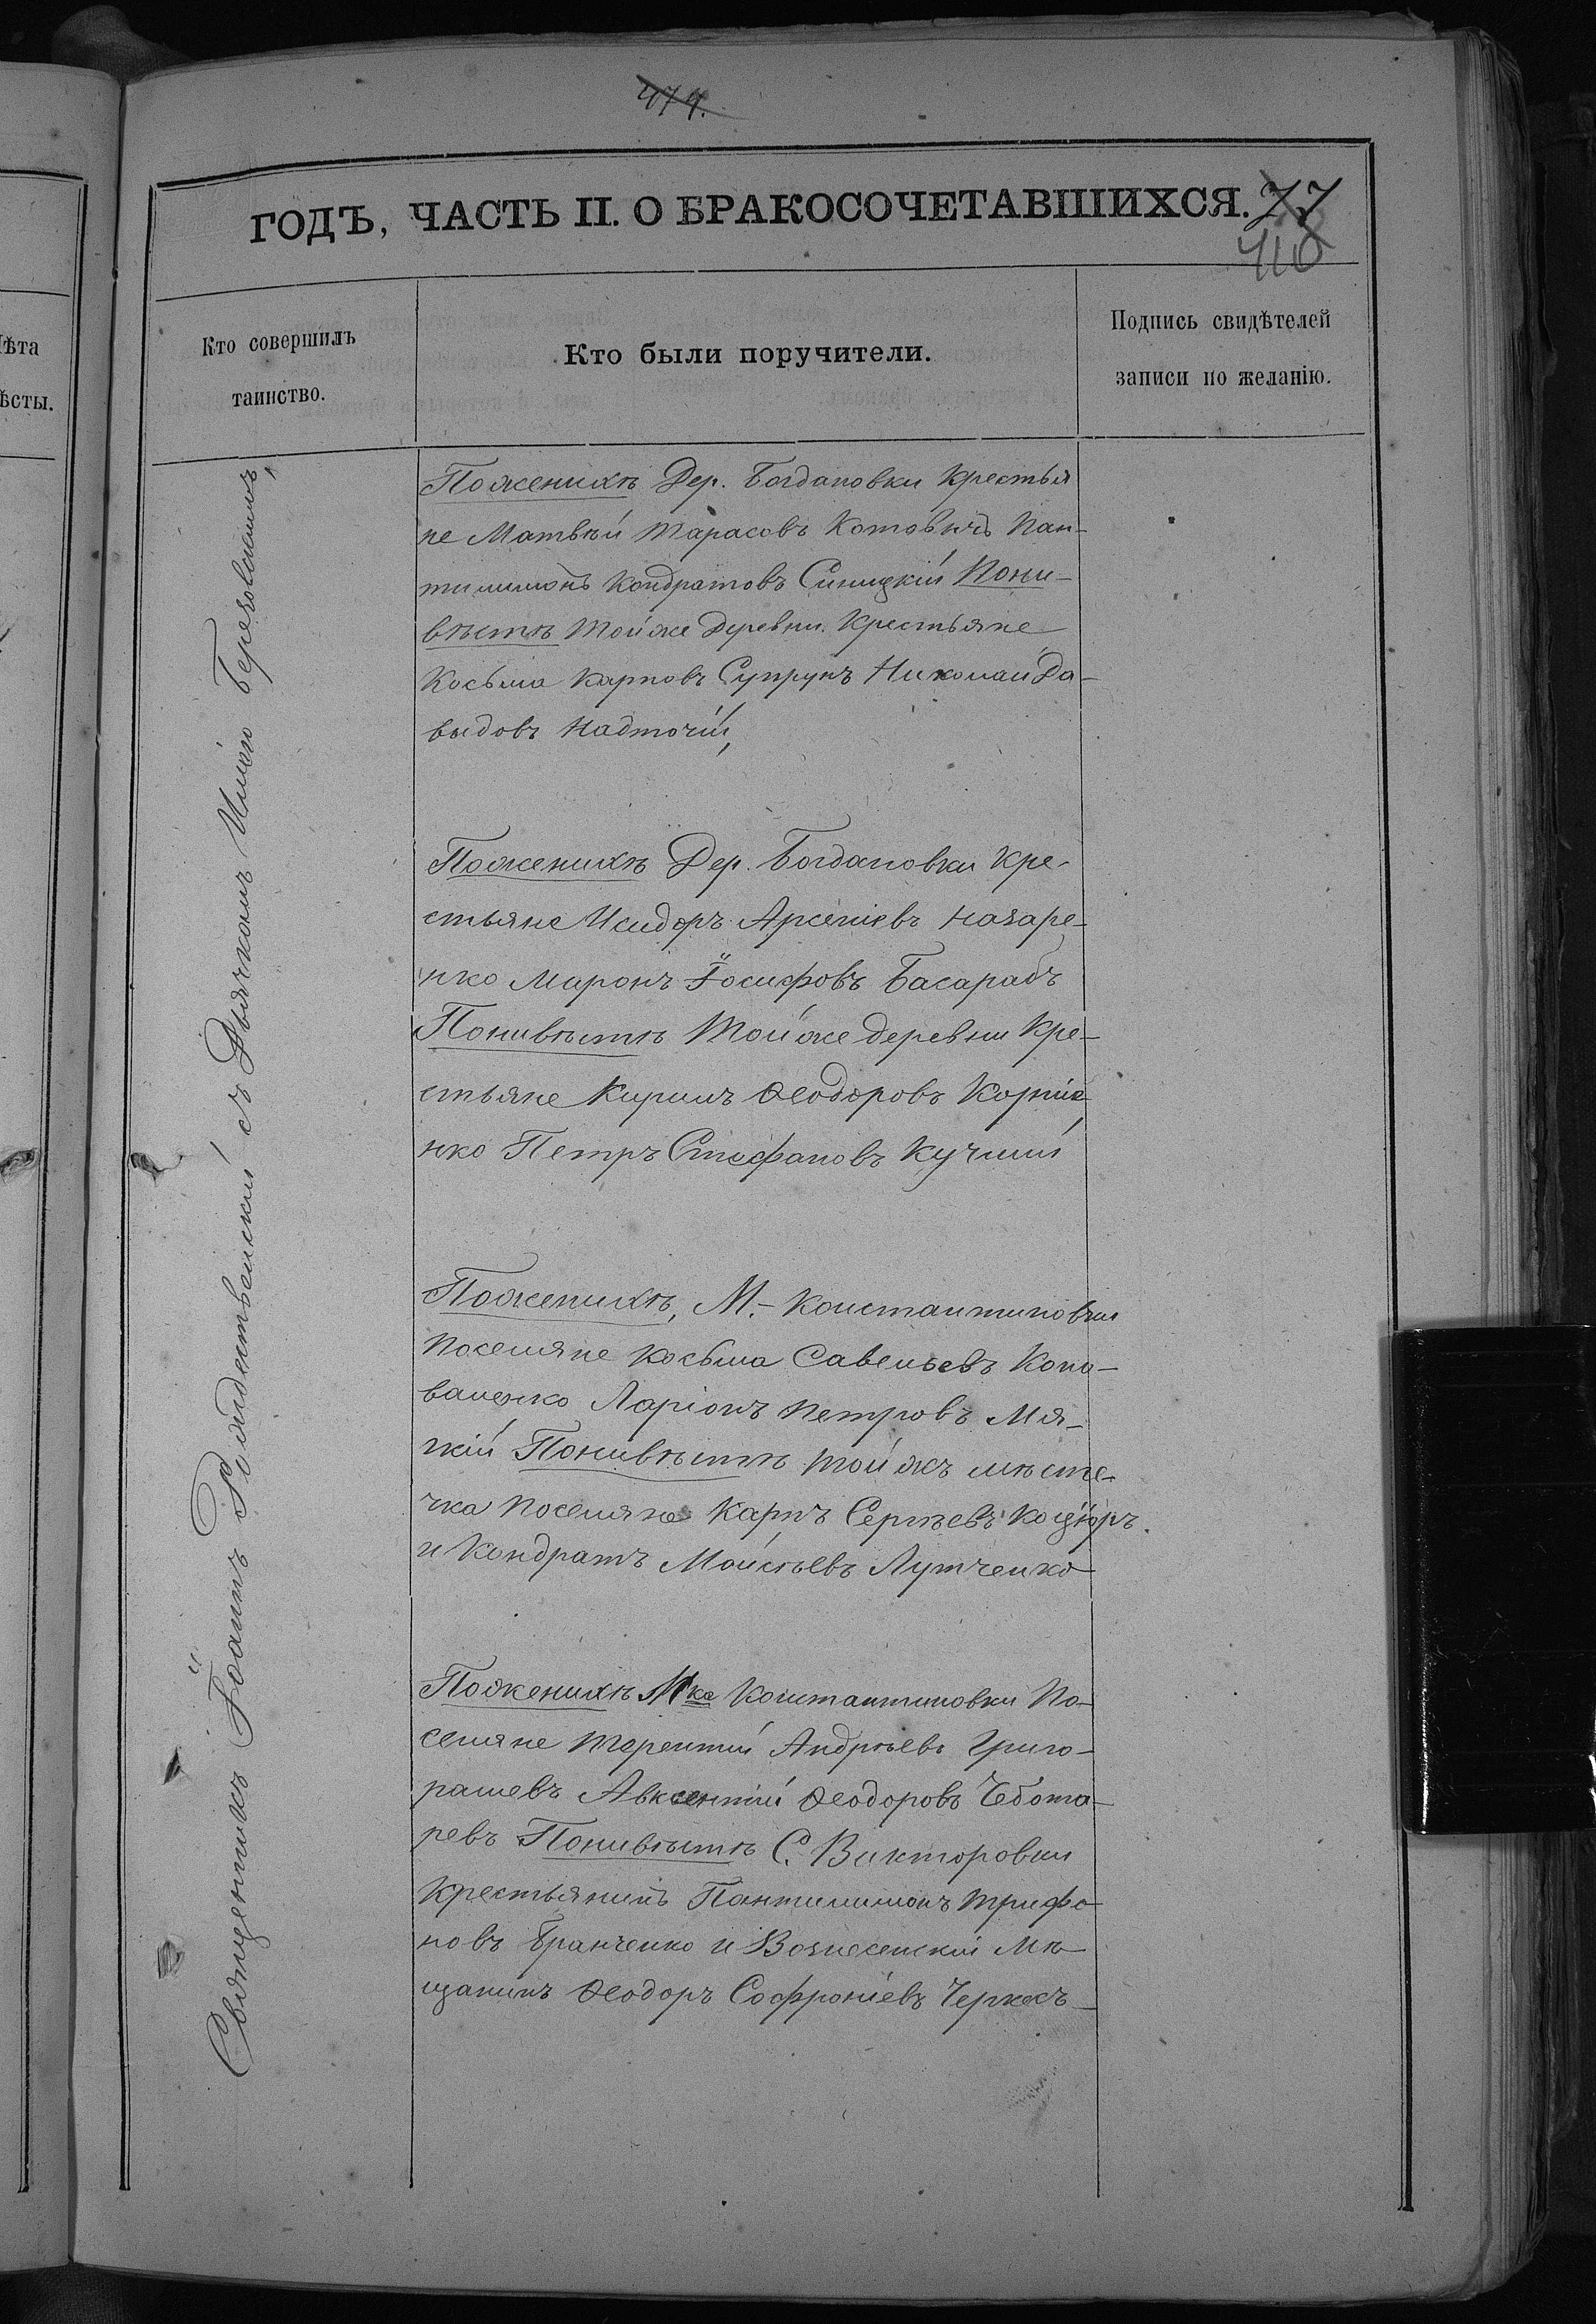 474.
ГОДЪ, ЧАСТЬ II. О БРАКОСОЧЕТАВШИХСЯ. 77
418
ѣта
ѣсты.
Кто совершилъ
таинство.
Кто были поручители.
Подпись свидѣтелей
записи по желанію.
Священникъ Іоаннъ Рождественскій съ Дьячкомъ Иліею Березовскимъ,
Поженихѣ Дер. Богдановки крестья
не Матвѣй Тарасовъ Котовичъ Пан-
тилимонъ Кондратовъ Синицкій Пони-
вѣстѣ Тойже деревни Крестьяне
Косьма Карповъ Супрунъ Николай Да-
выдовъ Надточій,
Поженихѣ Дер. Богдановки Кре-
стьяне Исидоръ Арсеніевъ Назаре-
нко Маронъ Іосифовъ Басарабъ
Понивѣстѣ Тойже деревни Кре-
стьяне Кирилъ Ѳеодоровъ Корніе-
нко Петръ Стефановъ Кучмій
Поженихѣ, М.- Константиновки
Поселяне Косьма Савельевъ Коно-
валенко Ларіонъ Петровъ Мя-
гкій Понивѣстѣ тойжъ мѣсте-
чка Поселяне Карпъ Сергѣевъ Коцюръ.
и Кондратъ Мойсѣевъ Лутченко
Поженихѣ М^ка Константиновки По-
селяне Терентій Андрѣевъ Григо-
рашевъ Авксентій Ѳеодоровъ Чебота-
ревъ Понивѣстѣ С. Викторовки
Крестьянинъ Пантилимонъ Трифо-
новъ Бранченко и Вознесенскій Мѣ-
щанинъ Ѳеодоръ Софроніевъ Черкесъ